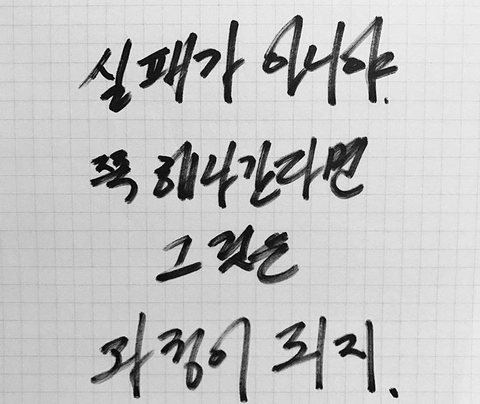 실패가 아니야.
쭉 해나간다면
그것은
과정이 되지.